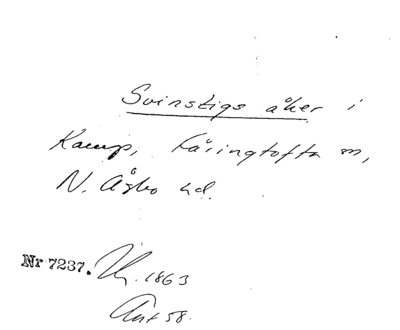 Svinstigs åker i
Kamp, Färingtofta sn,
N. Åsbo hd.
Nr 7237. 1863
Ant 58.